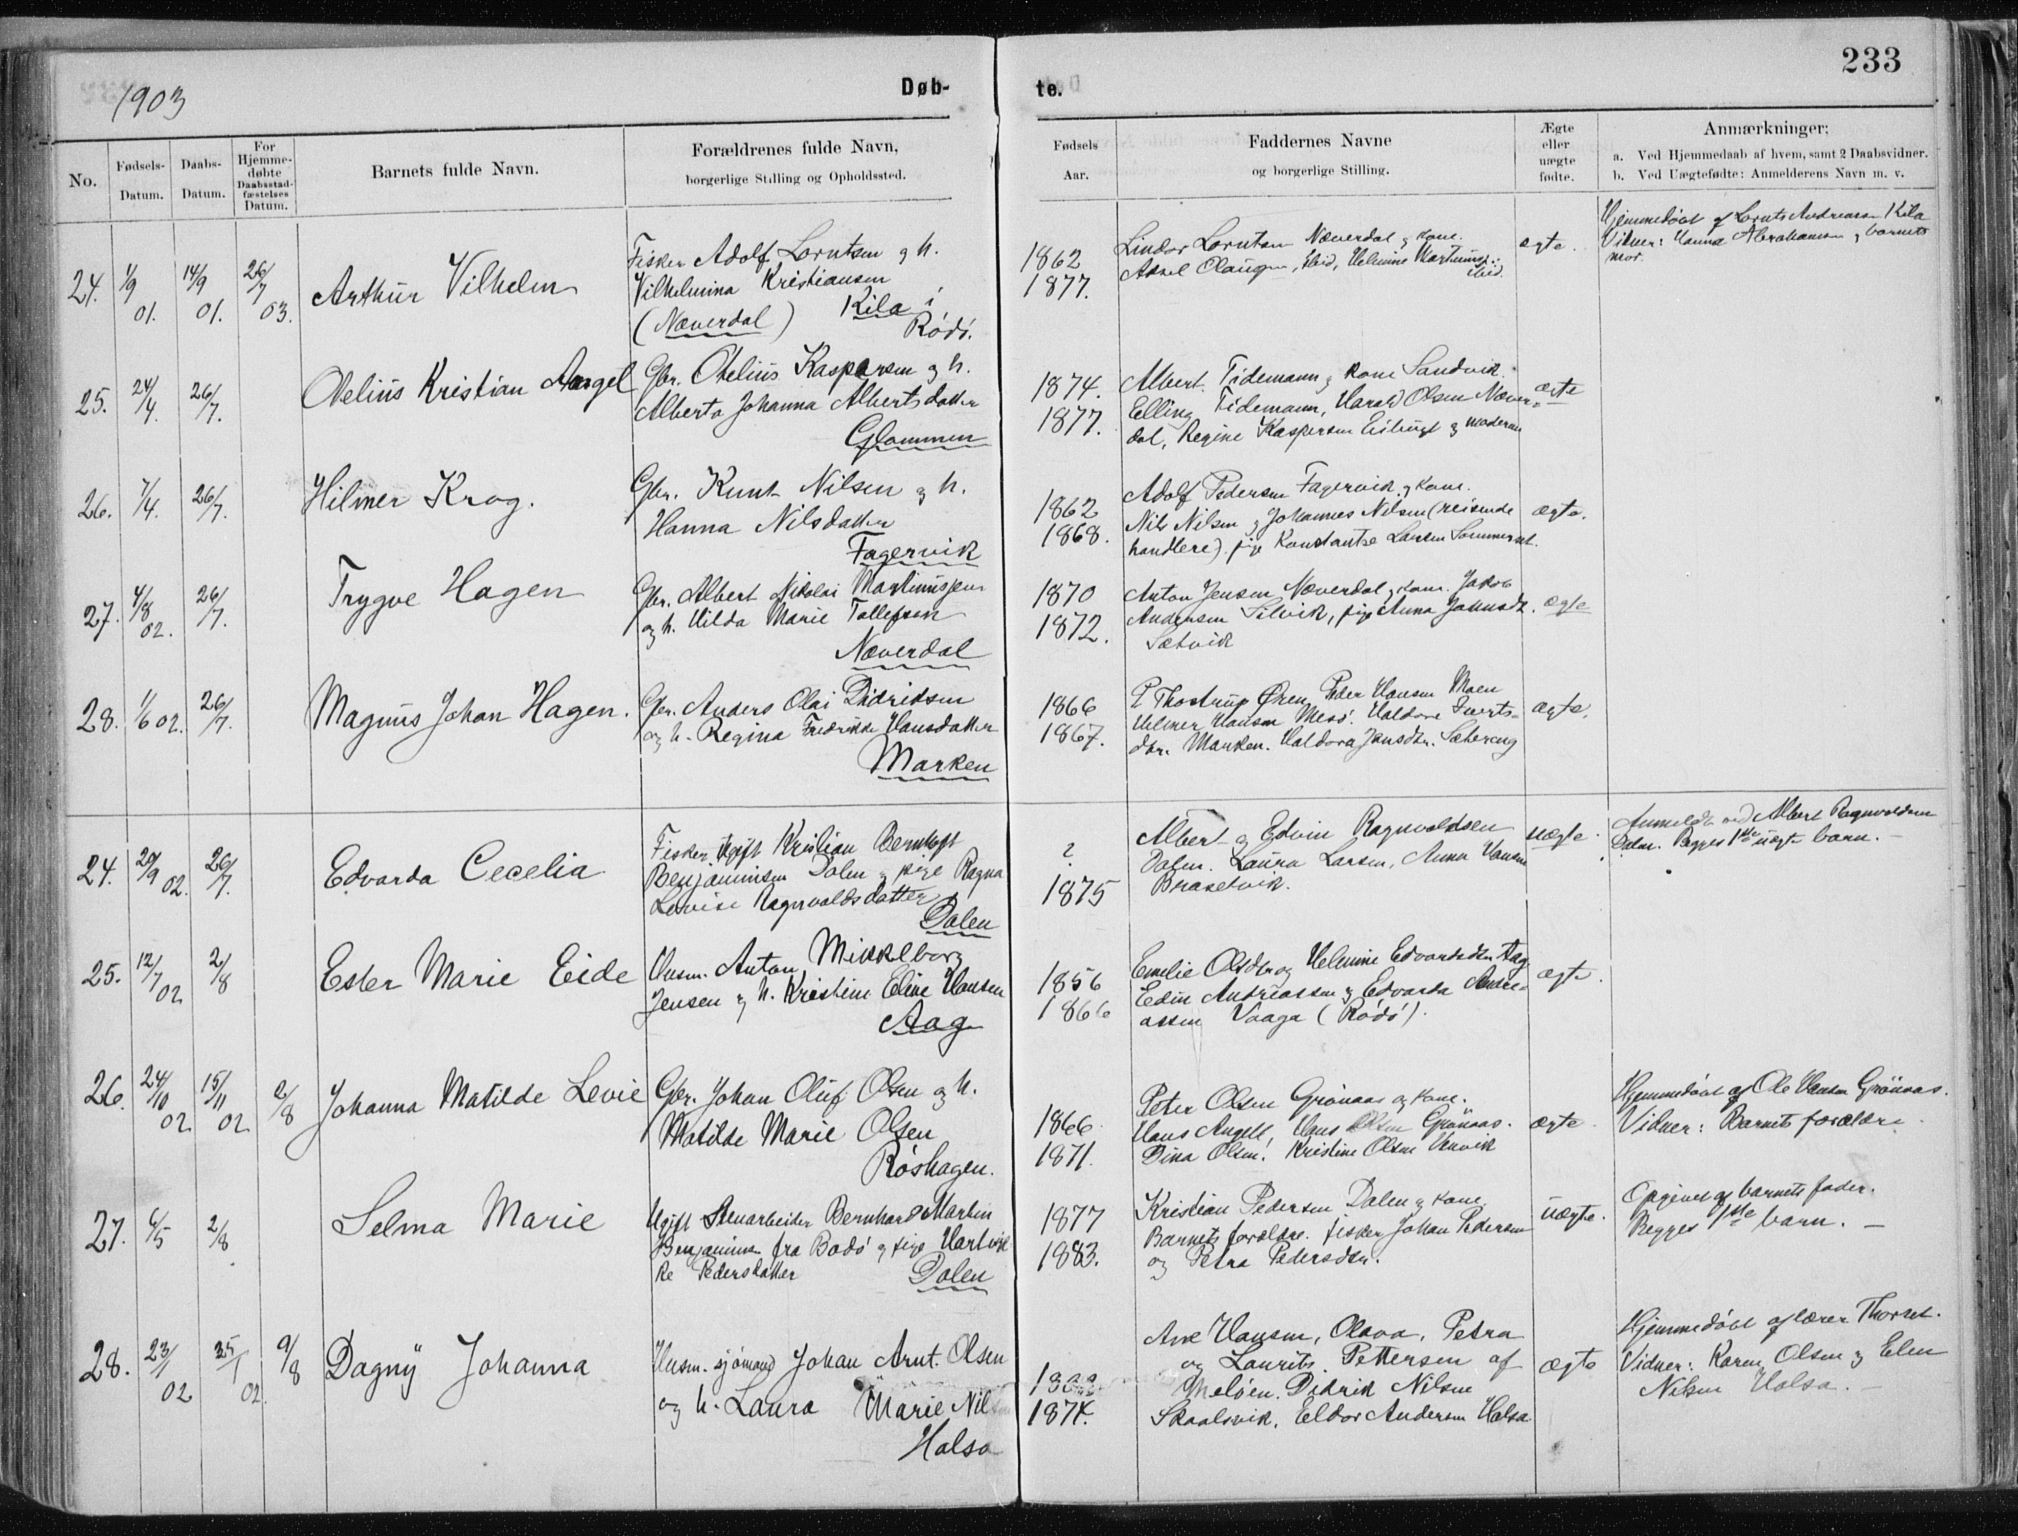 1903
Døb-
te.
233
No.
Fødsels-
Datum.
Daabs-
Datum.
For
Hjemme-
døbte
Daabsstad-
fæstelses
Datum.
Barnets fulde Navn.
Forældrenes fulde Navn,
borgerlige Stilling og Opholdssted.
Fødsels
Aar.
Faddernes Navne
og borgerlige Stilling.
Ægte
eller
uægte
fødte.
Anmærkninger:
a. Ved Hjemmedaab af hvem, samt 2 Daabsvidner.
b. Ved Uægtefødte: Anmelderens Navn m. v.
24. 1/9 01. 14/9 01. 26/7 03.
Arthur Vilhelm
Fisker Adolf Lorntsen og h.
Vilhelmina Kristiansen
(Næverdal) Kila i
Rödö.
1862
1877.
Lindor Lorntsen Næverdal og kone.
Aksel Olausen, ibid, Helmine Martinusd.
ibid.
ægte.
Hjemmedöbt af Lornts Andreassen Kila
Vidner: Hanna Abrahamsen og barnets
mor.
25. 24/4. 26/7.
Otelius Kristian Angel
Gbr. Otelius Kaspersen og h.
Alberta Johanna Albertsdatter
Glommen
1874.
1877.
Albert Tidemann og kone Sandvik.
Elling Tidemann, Harald Olsen Næver-
dal, Regine Kaspersen og moderen
ægte
26. 7/4. 26/7.
Hilmer Krog.
Gbr. Knut Nilsen og h.
Hanna Nilsdatter
Fagervik
1862
1868.
Adolf Pedersen Fagervik og kone.
Nils Nilsen og Johannes Nilsen (reisende
handlere). pige Konstantse Larsen Sommerset.
ægte.
27. 4/8 02. 26/7.
Trygve Hagen
Gbr. Albert Nikolai Martinussen
og h. Hilda Marie Tollefsen
Næverdal
1870
1872.
Anton Jensen Næverdal og kone. Jakob
Andersen Selvik, pige Anna Jakobsdt.
Sætvik
ægte
28. 1/6 02. 26/7.
Magnus Johan Hagen.
Gbr. Anders Olai Didriksen
og h. Regina Fredrikke Hansdatter
Marken
1866
1867.
P Thostrup Ören, Peder Hansen Moen
Helmer Hansen Mesö. Haldora Iverts-
dtr. Marken. Haldora Jensdtr. Sætereng
ægte.
24. 20/9 02. 26/7.
Edvarda Cecelia
Fisker, Ugift Kristian Bernhoft
Benjaminsen Dalen og pige Ragna
Lovise Ragnvaldsdatter
Dalen
?
1875
Albert og Edvin Ragnvaldsen
Dalen. Laura Larsen, Anna Hansen
Brasetvik.
uægte.
Anmeldt ved Albert Ragnvaldsen
Dalen. Begges 1ste uægte barn. —
25. 12/7 02 2/8
Ester Marie Eide
Husm. Anton Mikkelborg
Jensen og h. Kristine Eline Hansen
Aag
1856
1866
Emelie Olsdtr og Helmine Edvardsdtr Aag
Edin Andreassen og Edvarda Andre-
assen Vaaga (Rödö).
ægte.
26. 24/10 02 15/11 02 2/8
Johanna Matilde Levie
Gbr. Johan Oluf Olsen og h.
Matilde Marie Olsen
Röshagen.
1866.
1871.
Peter Olsen Grönaas og kone.
Hans Angell, Hans Olsen Grönaas.
Dina Olsen. Kristine Olsen Venvik
ægte.
Hjemmedöbt af Ole Hansen Grönaas.
Vidner: Barnets forældre.
27. 6/5 2/8
Selma Marie
Ugift Stenarbeider Bernhard Martin
Benjaminsen fra Bodö og pige Hartvik-
ke Pedersdatter
Dalen
1877
1883.
Kristian Pedersen Dalen og kone.
Barnets forældre. fisker Johan Pedersen
og Petra Pedersdtr.
uægte.
Opgivet af barnets fader.
Begges 1ste barn. —
28. 23/1 02 25/1 02 9/8
Dagny Johanna
Husm. sjömand Johan Arnt Olsen
og h. Laura Marie Nilsen
Halsa
1874.
Ane Hansen, Olava, Petra
og Laurits Pettersen af
Melöen. Didrik Nilsen
Skaalsvik. Eldor Andersen Halsa
ægte
Hjemmedöbt af lærer Thorset.
Vidner: Karen Olsen og Elen
Nilsen Halsa. —